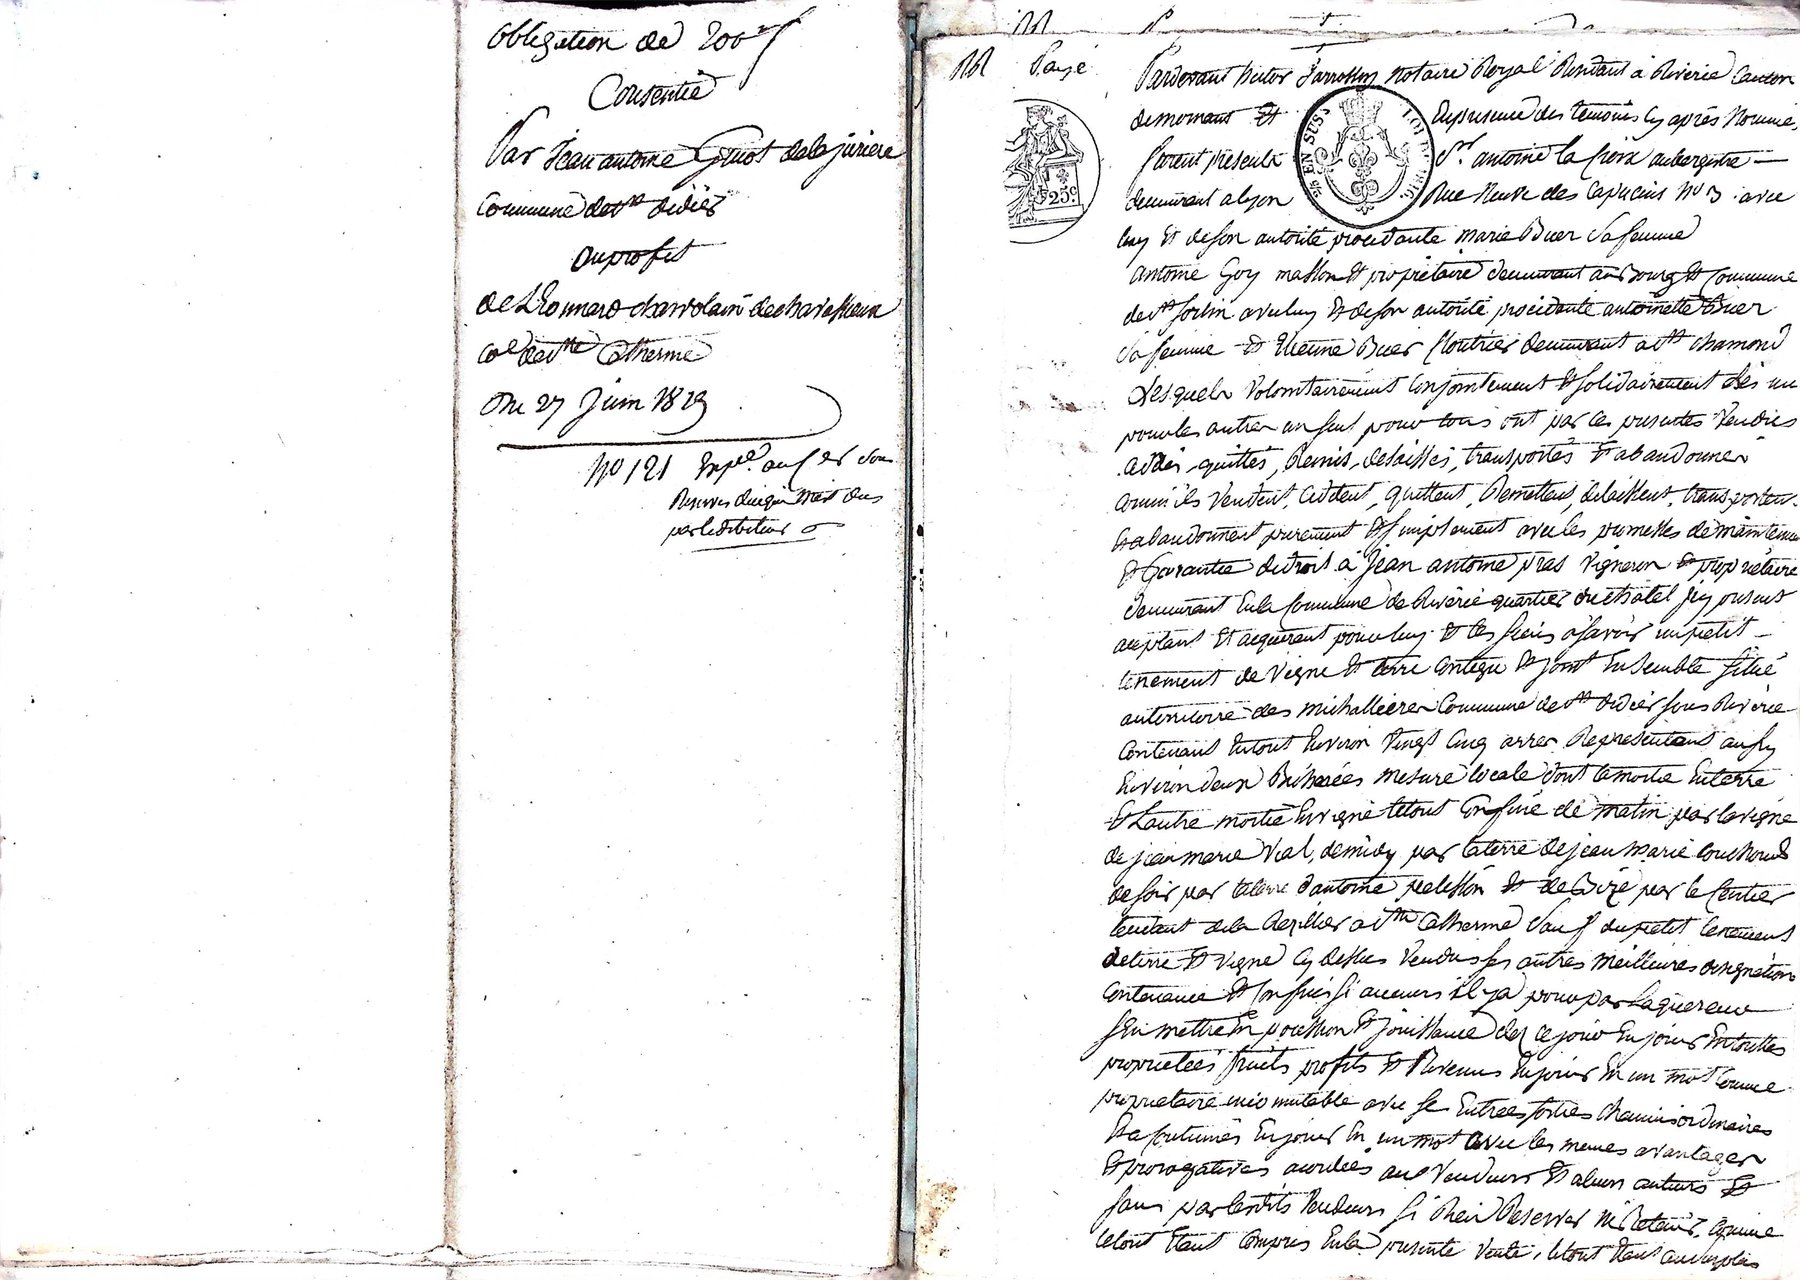 obligation de 200 f
Consentie
Par Jean antoine Guiot de la juriere
Commune de st didier
au profit
de Léonnard charvolain de chavasseux
coe de ste Catherine
Du 27 Juin 1819
No 121 Expée aux frs
Reserves
par le debiteur
Payé
Pardevant notaire Royal Résidant à Riverie canton
de mornant Et En presence des temoins cy après Nommés
furent présents Sr antoine la froix aubergiste
demeurant a lyon Rue Neuve des Capucins No 3 avec
luy Et de son autorité procedante marie Buer Sa femme
antoine Goy masson Et propriétaire demeurant au Bourg Et Commune
de st sorlin avec luy Et de son autorité procédante antoinette Buer
Sa femme Et Etienne Buer Cloutrier demeurant a st chamond
Lesquels volontairement Conjointement Et solidairement Les un
pour les autres un seul pour tous ont par ces presentes Vendus
cédés, quittés, Remis, delaissés, transportés Et abandonnés
comme ils Vendent, cedent, quittent, Remettent, delaissent, transportent
Et abandonnent purement Et simplement avec les promesses de maintenue
Et Garantie de droit à Jean antoine pras Vigneron Et propriétaire
demeurant En la Commune de Riverie quartier du chatel Jcy présent
acceptant Et acquerant pour luy Et les siens a savoir un petit
tenement de Vigne Et terre Contigu Et joint Ensemble situé
au territoire des michallieres Commune de st didier sous Riverie
Contenant En tout Environ Vingt Cinq arres Representant
Environ deux Bicherées mesure locale dont la moitié En terre
Et Lautre moitié En vigne le tout Confiné de matin par la vigne
de jean marie Vial, de midy par la terre de jean marie Couchoud
de soir par la terre d'antoine pelisson Et de Bize par le sentier
tendant de la a ste Catherine Sauf du petit tenement
de terre Et Vigne Cy dessus Vendus ses autres meilleures designations
Contenance Et Confins si aucuns il y a pour par Lacquereur
sen mettre En possession Et Jouissance dès ce jour En jouir En toutes
proprietées fruits profits Et Revenus En jouir En un mot Comme
propriétaire incomutable avec se Entrées sorties chemins ordinaires
Et acoutumés En jouir En un mot avec les memes avantages
Et prorogatives acordées aux Vendeurs Et a leurs auteurs Et
sans par lesdits Vendeurs si Rien Reserver ni Retenir, comme
le tout Etant Compris En la presente Vente, le tout Etant